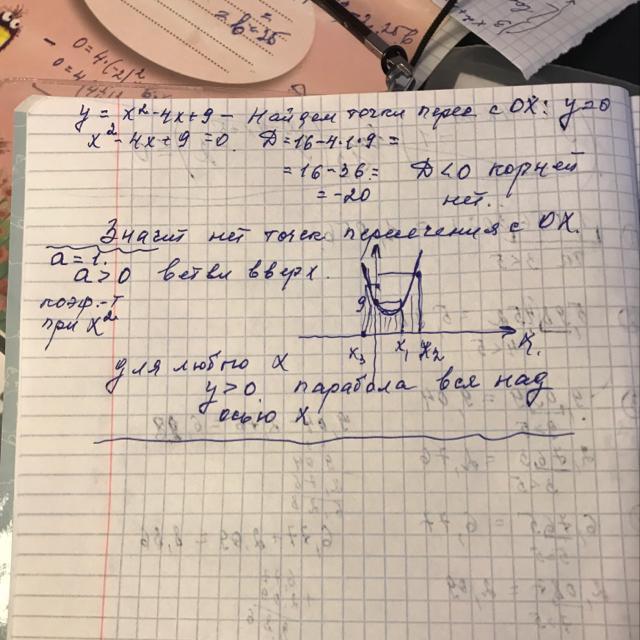 = в = 25
2.25в
- 0 = 4·(2)2
0 = 4
y = x² - 4x + 9 - Найдем точки перес с OX: y = 0
x² - 4x + 9 = 0. D = 16 - 4·1·9 =
= 16 - 36 = D < 0 корней
= -20 нет.
Значит нет точек пересечения с OX.
a = 1.
a > 0 ветви вверх.
коэф.-т
при x²
9
x₃ x₁ x₂ X.
для любого x
y > 0 парабола вся над
осью X.